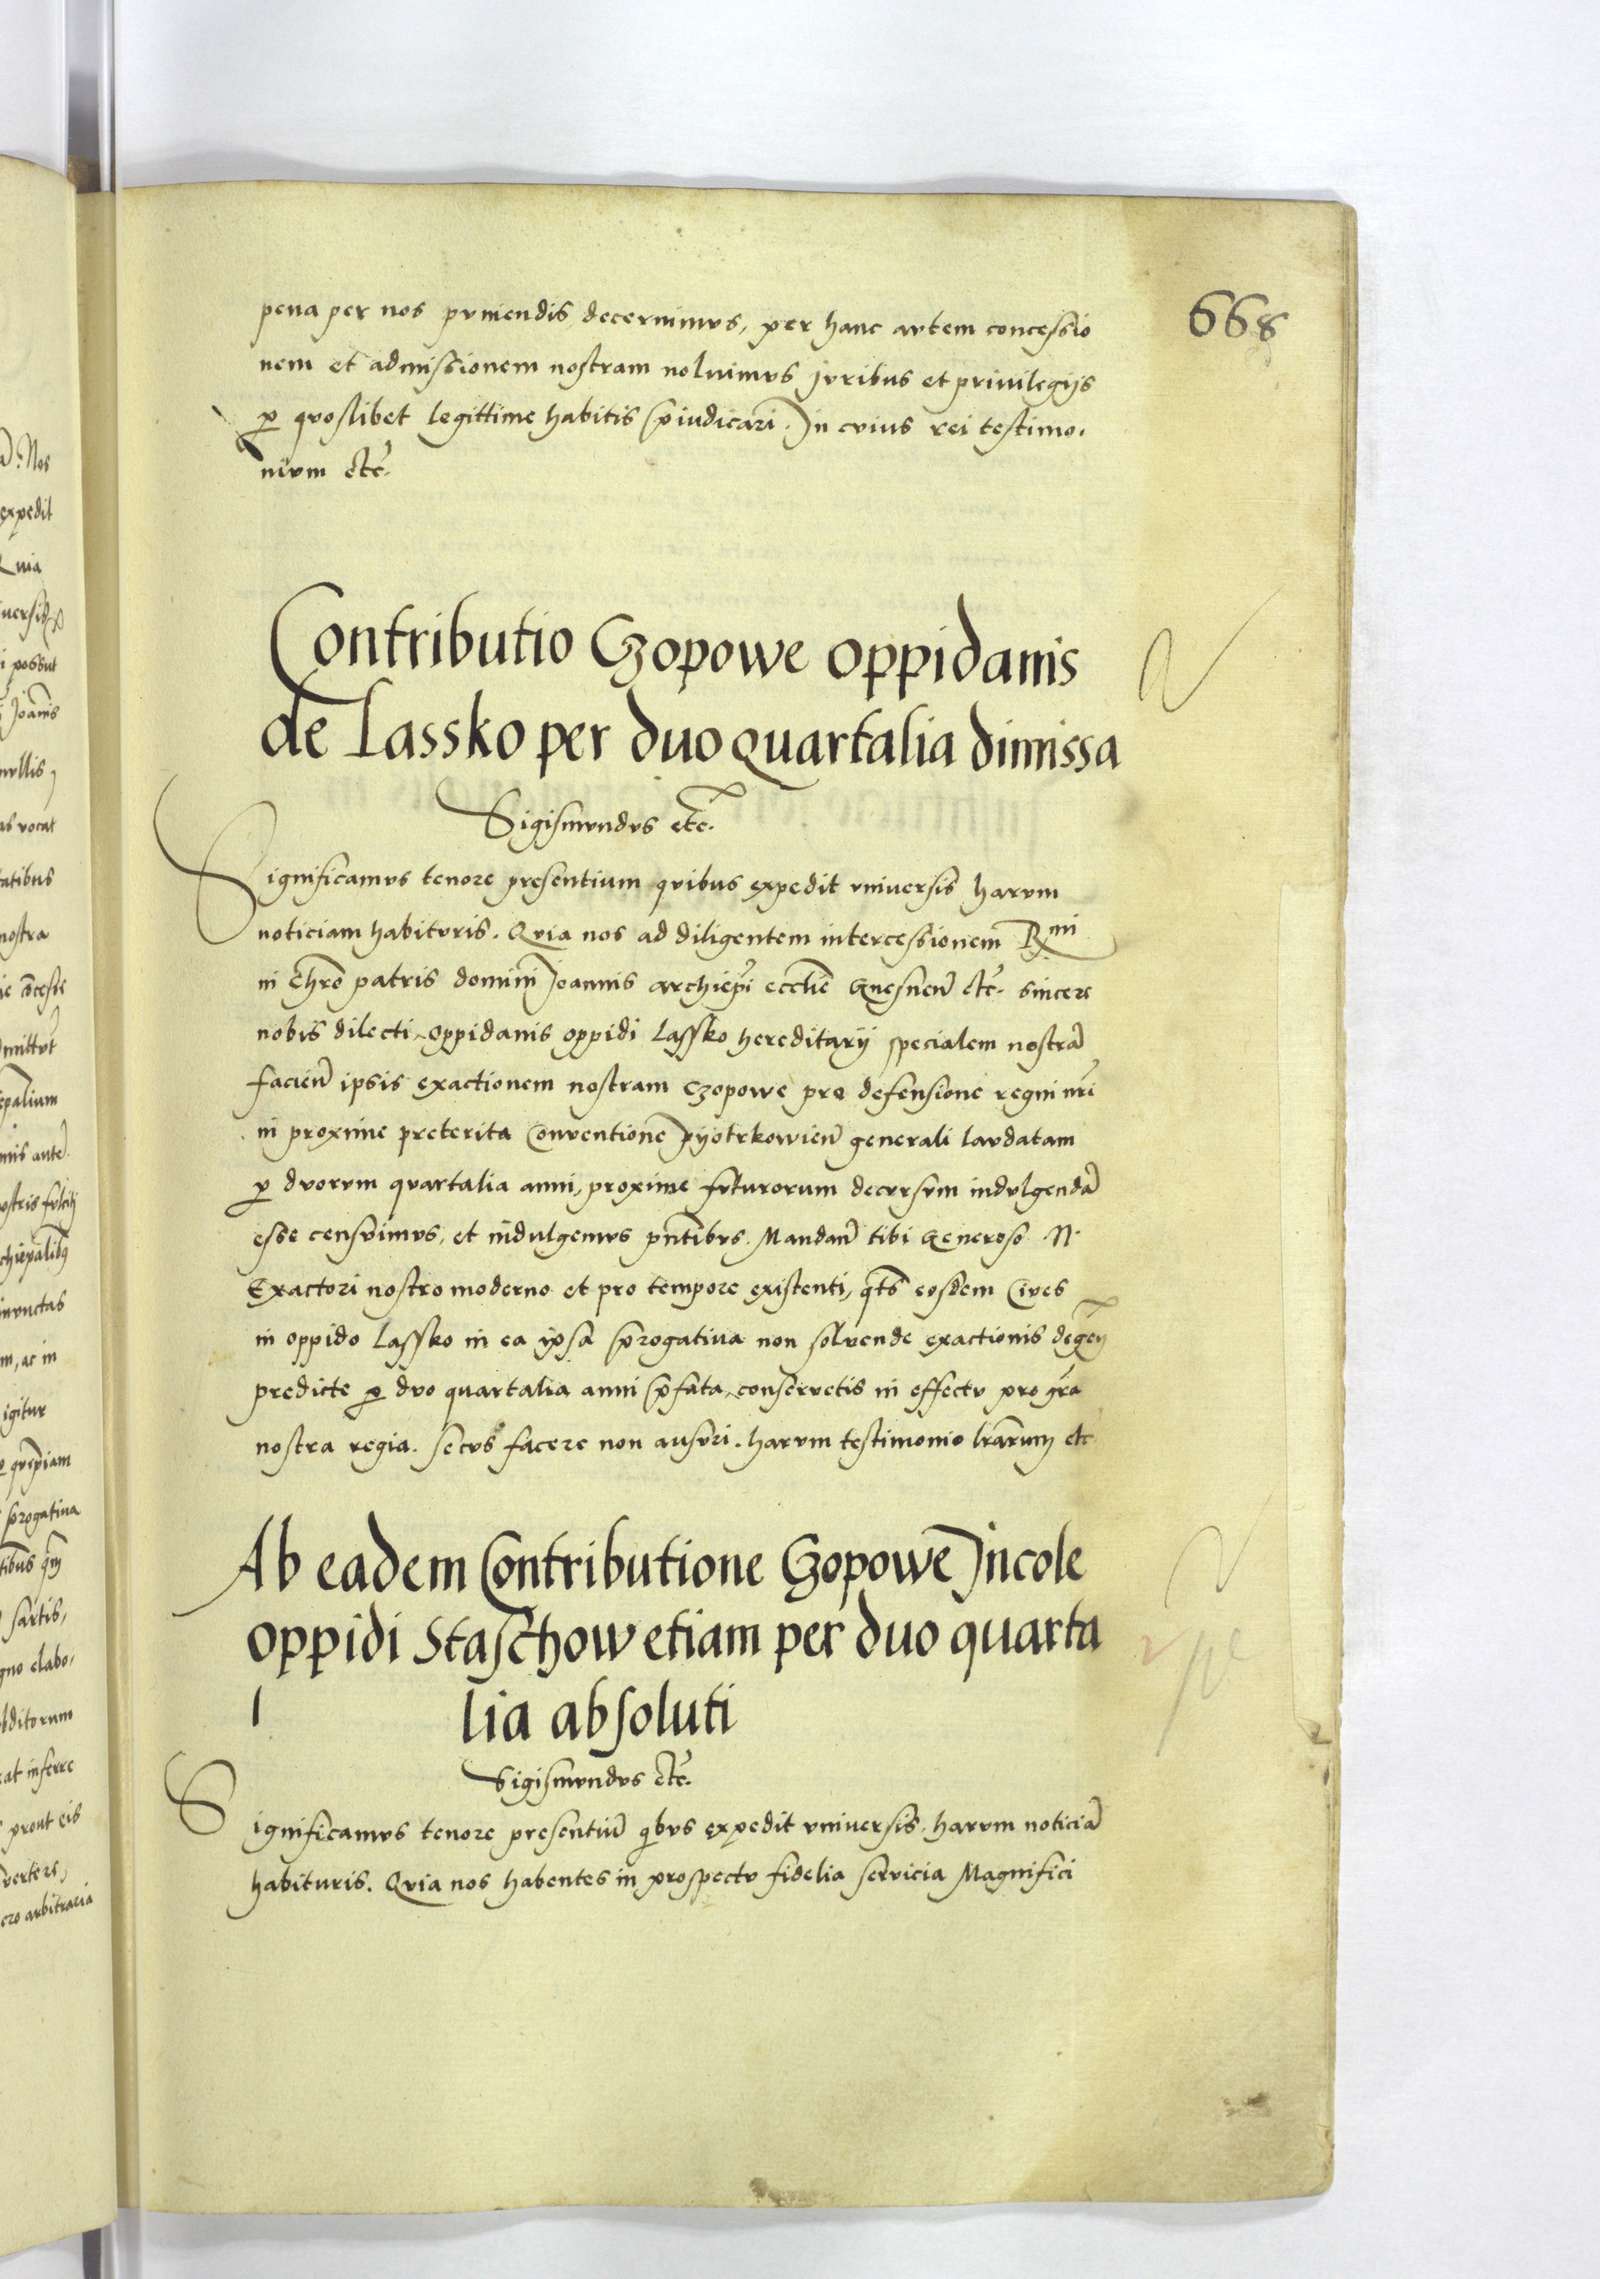 668
pena per nos pvniendis decernimvs, per hanc avtem concessio
nem et admissionem nostram nolvimvs jvribus et privilegijs
p qvoslibet legittime habitis p̄iudicari. In cvius rei testimo.
nivm etc̄.
Contributio Czopowe oppidanis
de Lassko per duo quartalia dimissa
Sigismvndvs etc̄.
Significamvs tenore presentium qvibus expedit vniversis harvm
noticiam habitvris. Qvia nos ad diligentem intercessionem R^mi
in Chr̄o patris domini Joannis archiep̄i eccl̄ie Gnesnen̄ etc̄. sincere
nobis dilecti, oppidanis oppidi Lassko hereditarij specialem nostrā
facien̄ ipsis exactionem nostram Czopowe pro defensione regni nr̄i
in proxime preterita Conventione pyotrkowien̄ generali lavdatam
p dvorvm qvartalia anni, proxime fvturorum decvrsvm indvlgendā
esse censvimvs, et indvlgemvs pn̄tibvs. Mandan̄ tibi Generoso N.
Exactori nostro moderno et pro tempore existenti, qt̄s eosdem Cives
in oppido Lassko in ea ipsa p̄rogativa non solvende exactionis degen̄
predicte p dvo qvartalia anni p̄fata, conservetis in effectv pro gr̄a
nostra regia. secvs facere non ausvri. harvm testimonio lr̄arum etc
Ab eadem Contributione Czopowe Incole
oppidi Staschow etiam per duo quarta
lia absoluti
Sigismvndvs etc̄.
Significamvs tenore presentiū qibvs expedit vniversis. harvm noticiā
habituris. Qvia nos habentes in prospectv fidelia servicia Magnifici